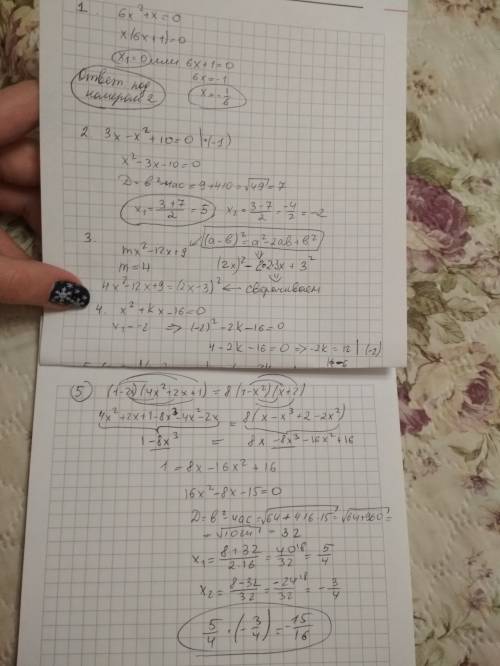 1.
6x²+x=0
x(6x+1)=0
x₁=0 или 6x+1=0
6x=-1
x=-1/6
Ответ под номером 2
2. 3x-x²+10=0 |·(-1)
x²-3x-10=0
D=в²-4ас=9+4·10=√49=7
x₁=(3+7)/2=5 x₂=(3-7)/2=-4/2=-2
3.
(a-в)²=a²-2aв+в²
mx²-12x+9
m=4 (2x)²-2·2·3x+3²
4x²-12x+9=(2x-3)² ← сворачиваем
4. x²+kx-16=0
x₁=-2 ⇒ (-2)²-2k-16=0
4-2k-16=0 ⇒ -2k=12 |(-2)
k=-6
5 (1-2x)(4x²+2x+1)=8(1-x²)(x+2)
4x²+2x+1-8x³-4x²-2x = 8(x-x³+2-2x²)
1-8x³ = 8x-8x³-16x²+16
1=8x-16x²+16
16x²-8x-15=0
D=в²-4ас=√64+4·16·15=√64+960=
=√1024=32
x₁=(8+32)/(2·16)=40/32=5/4
x₂=(8-32)/32=-24/32=-3/4
5/4·(-3/4)=-15/16